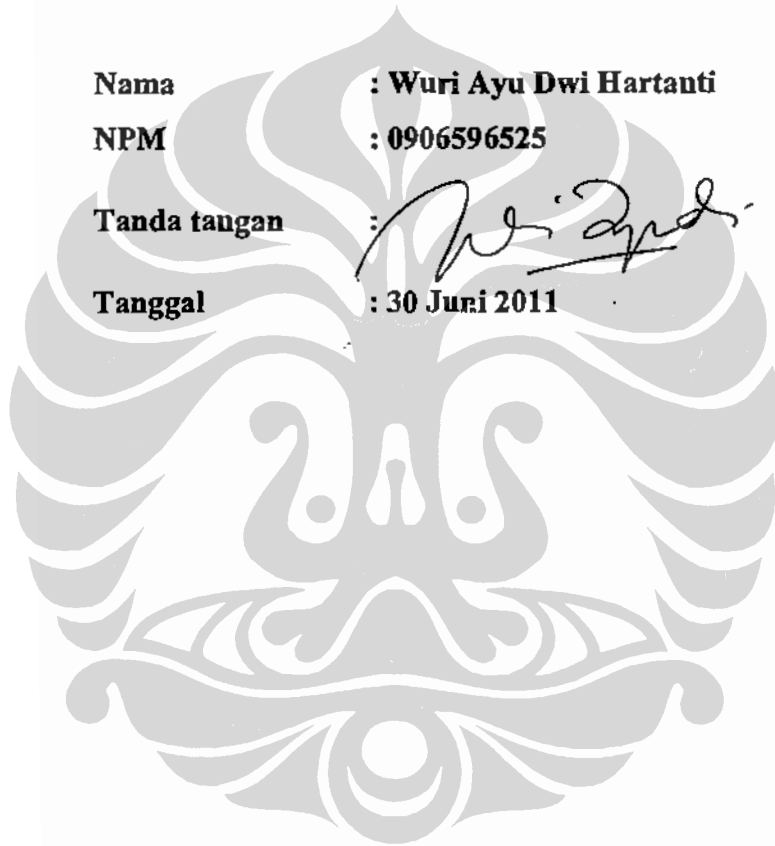 Nama : Wuri Ayu Dwi Hartanti
NPM : 0906596525
Tanda tangan :
Tanggal : 30 Juni 2011